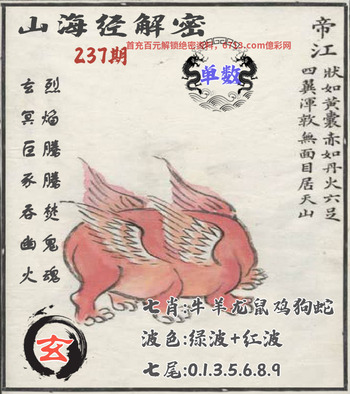 山海经解密
首充百元解锁绝密资料
億彩网
237期
单数
帝江
狀如黃囊赤如丹火六足
四翼渾敦無面目居天山
烈焰騰騰焚鬼魂
玄冥巨豕吞幽火
七肖:牛羊龙鼠鸡狗蛇
波色:绿波+红波
七尾:0.1.3.5.6.8.9
玄